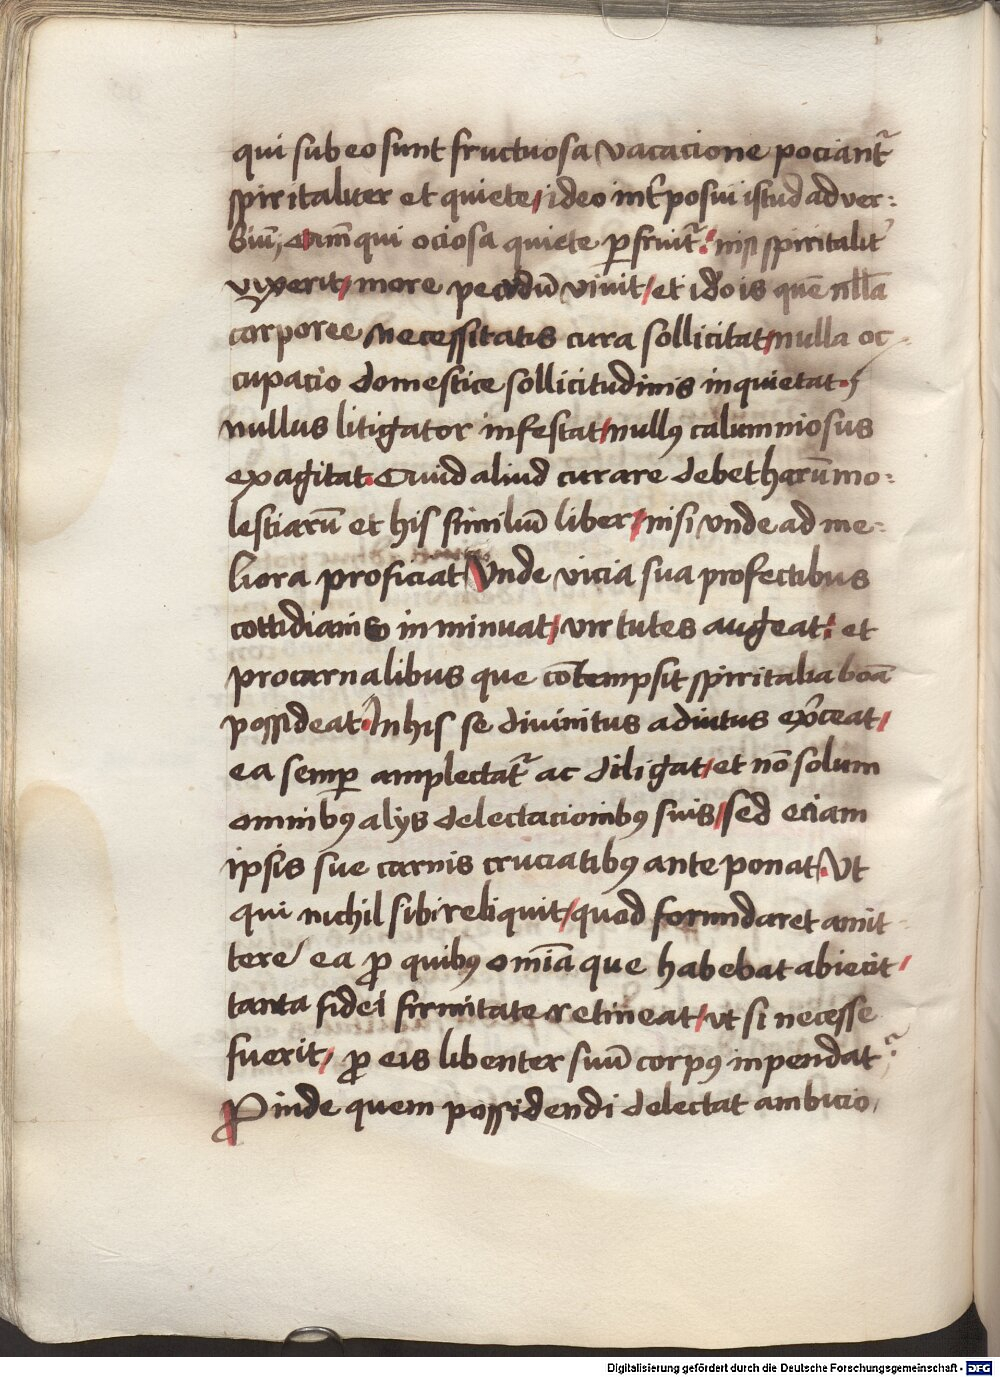 qui sub eo sunt fructuosa vacacione pociant᷑
spiritaliter et quiete / ideo int̄posui istud ad ver:
bium qui ociosa quiete ꝑfruit᷑: nisi spiritalit᷑
vixerit / more pecudū viuit / et idō is quē nll̄a
corporee necessitatis cura sollicitat / nulla oc-
cupacio domestice sollicitudinis inquietat.
nullus litigator infestat / nullꝰ calumniosus
exagitat. Quid aliud curare debet harū mo:
lestiarū et his similiū liber / nisi vnde ad me:
liora proficiat Vnde vicia sua profectibus
cottidianis inminuat / virtutes augeat: et
procarnalibus que cōtempsit spiritalia bōa
possideat. In his se diuinitus adiutus ex̄ceat /
ea semꝑ amplectat᷑ ac diligat / et nō solum
omnibꝰ alijs delectacionibꝰ suis / sed eciam
ipsis sue carnis cruciatibꝰ ante ponat. Vt
qui nichil sibi reliquit / quod formidaret amit
tere ea ꝓ quibꝰ omīa que habebat abiecit /
tanta fidei firmitate retineat / vt si necesse
fuerit / ꝓ eis libenter suū corpꝰ inpendat᷑
Proinde quem possidendi delectat ambicio /
Digitalisierung gefördert durch die Deutsche Forschungsgemeinschaft - DFG